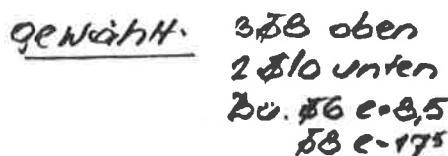 gewählt. 3 ∅8 oben
2 ∅10 unten
Bü. ∅6 e=8,5
∅8 e=17⁵